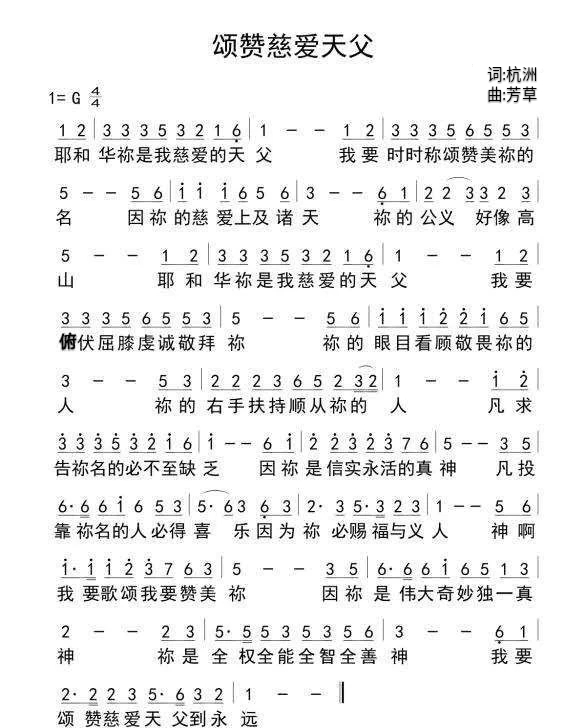 颂赞慈爱天父
词:杭洲
1= G 4/4
曲:芳草
1 2 | 3 3 3 5 3 2 1 6 | 1 - - 1 2 | 3 3 3 5 6 5 5 3 |
耶和 华祢是我慈爱的天 父 我 要 时时称颂赞美祢的
5 - - 5 6 | i 1 i 6 5 6 | 3 - - 6 1 | 2 2 3 3 2 3 |
名 因 祢 的慈 爱上及 诸 天 祢 的 公义 好像 高
5 - - 1 2 | 3 3 3 5 3 2 1 6 | 1 - - 1 2 |
山 耶 和 华祢是我慈爱的天 父 我 要
3 3 3 5 6 5 5 3 | 5 - - 5 6 | i i i 2 2 i 6 5 |
俯伏屈膝虔诚敬拜 祢 祢 的 眼目看顾敬畏祢的
3 - - 5 3 | 2 2 2 3 6 5 2 3 2 | 1 - - i 2 |
人 祢 的 右手扶持顺从祢的 人 凡 求
3 3 3 5 3 2 i 6 | i - - 6 i | 2 2 3 2 3 7 6 | 5 - - 3 5 |
告祢名的必不至缺 乏 因 祢 是 信实永活的真 神 凡 投
6· 6 6 i 6 5 3 | 5· 6 3 6 3 | 2· 3 5· 3 2 3 | 1 - - 5 6 |
靠 祢名的人必得 喜 乐 因 为 祢 必赐 福与义 人 神 啊
i· i i 2 3 7 6 3 | 5 - - 3 5 | 6· 6 6 i 6 5 1 3 |
我 要歌颂我要赞美 祢 因 祢 是 伟大奇妙独一真
2 - - 2 3 | 5· 5 5 3 5 3 5 6 | 3 - - 6 1 |
神 祢 是 全 权全能全智全善 神 我 要
2· 2 2 3 5· 6 3 2 | 1 - -
颂 赞慈爱天 父到永 远